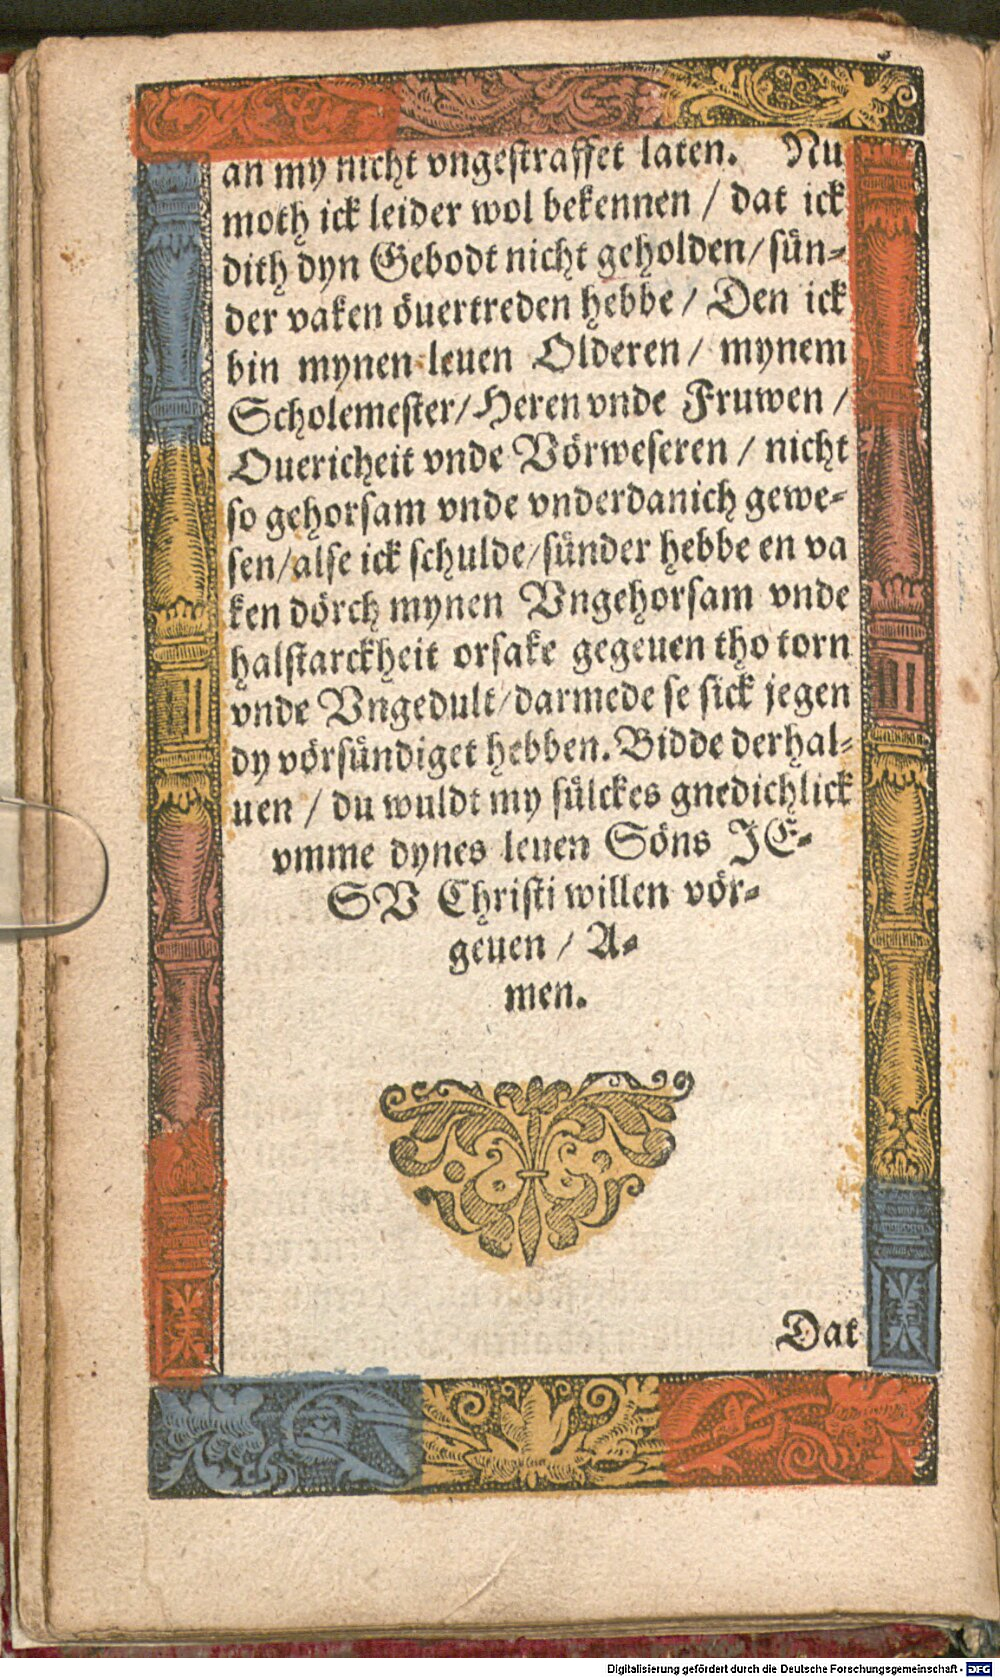 an my nicht vngestraffet laten. Nu
moth ick leider wol bekennen / dat ick
dith dyn Gebodt nicht geholden / sün-
der vaken öuertreden hebbe / Den ick
bin mynen leuen Olderen / mynem
Scholemester / Heren vnde Fruwen /
Ouericheit vnde Vörweseren / nicht
so gehorsam vnde vnderdanich gewe-
sen / alse ick schulde / sünder hebbe en va
ken dörch mynen Vngehorsam vnde
halstarckheit orsake gegeuen tho torn
vnde Vngedult / darmede se sick jegen
dy vörsündiget hebben. Bidde derhal-
uen / du wuldt my sülckes gnedichlick
vmme dynes leuen Söns JE-
SV Christi willen vör-
geuen / A-
men.
Dat
Digitalisierung gefördert durch die Deutsche Forschungsgemeinschaft - DFG